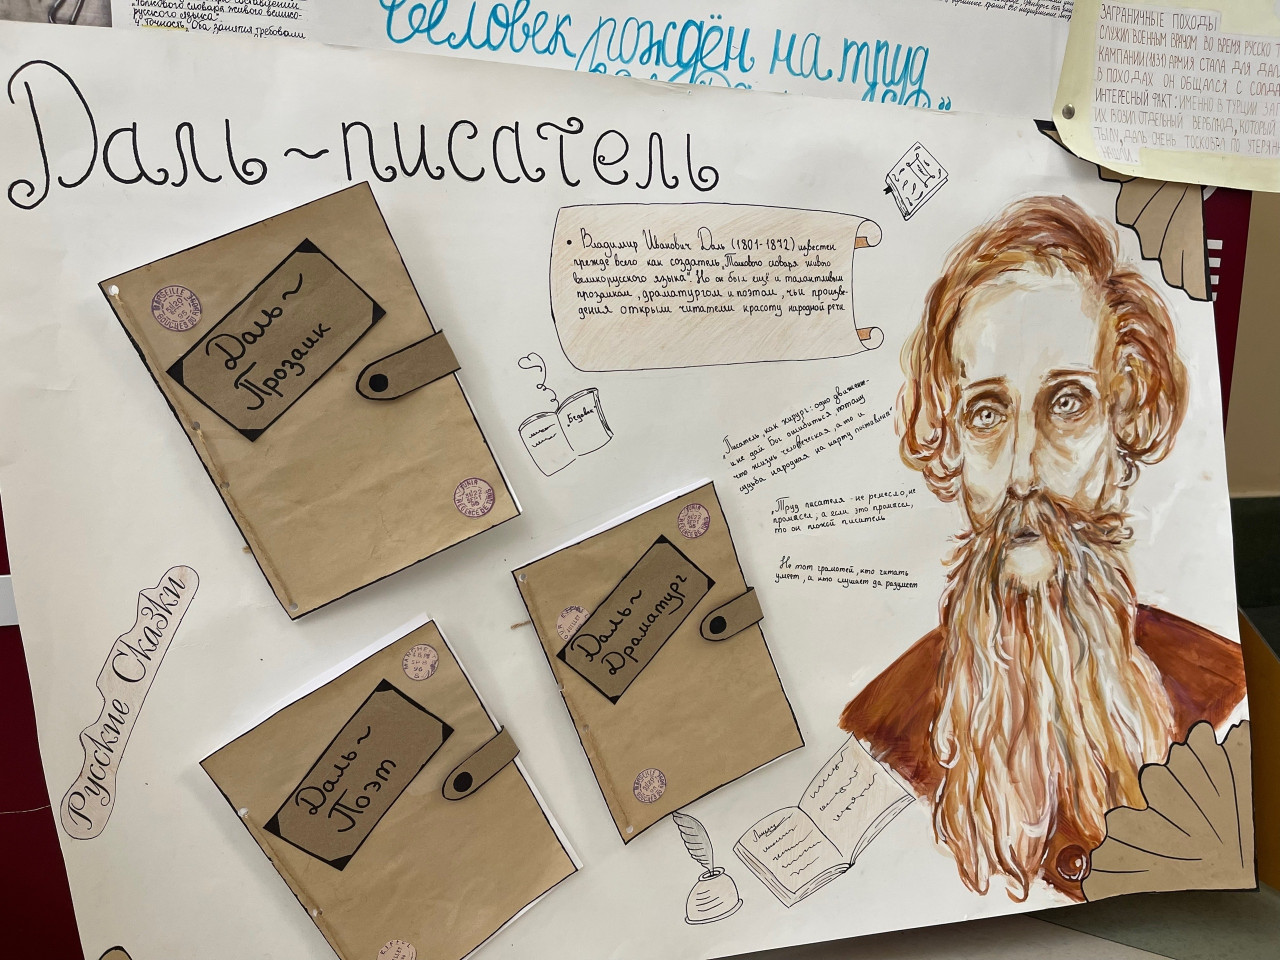 „Толкового словаря живого велико-
русского языка".
4. Точность. Оба занятия требовали
Человек рождён на труд
ЗАГРАНИЧНЫЕ ПОХОДЫ
СЛУЖИЛ ВОЕННЫМ ВРАЧОМ ВО ВРЕМЯ РУССКО - Т
КАМПАНИИ (1831) АРМИЯ СТАЛА ДЛЯ ДАЛ
В ПОХОДАХ ОН ОБЩАЛСЯ С СОЛДА
ИНТЕРЕСНЫЙ ФАКТ: ИМЕННО В ТУРЦИИ ЗА
ИХ ВОЗИЛ ОТДЕЛЬНЫЙ ВЕРБЛЮД, КОТОРЫЙ
ТЫЛУ, ДАЛЬ ОЧЕНЬ ТОСКОВАЛ ПО УТЕРЯНН
НАШЛИ.
Даль ~ писатель
• Владимир Иванович Даль (1801-1872) известен
прежде всего как создатель „Толкового словаря живого
великорусского языка". Но он был ещё и талантливым
прозаиком, драматургом и поэтом, чьи произве-
дения открыли читателю красоту народной речи
Даль ~
Прозаик
„Бедовик"
„Писатель, как хирург: одно движен-
и не дай Бог ошибиться, потому
что жизнь человеческая, а то и
судьба народная на карту поставлена"
„Труд писателя - не ремесло, не
промысел, а если это промысел,
то он плохой писатель
Не тот грамотей, кто читать
умеет, а кто слушает да разумеет
Даль ~
Драматург
Русские Сказки
Даль ~
Поэт